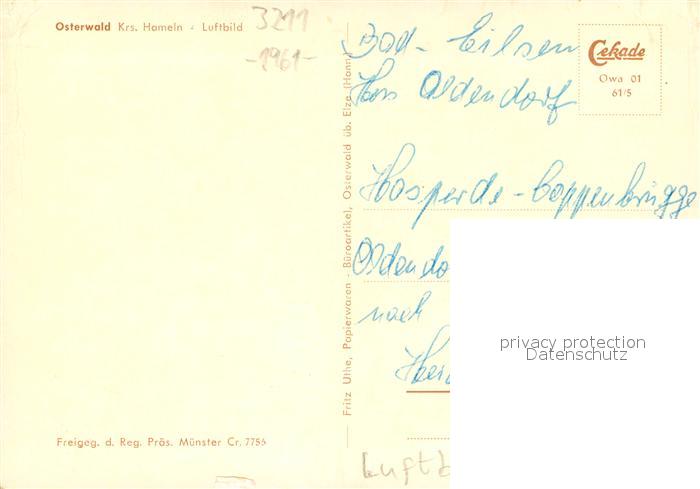 Osterwald Krs. Hameln - Luftbild
3211
-1961-
Fritz Uthe, Papierwaren - Büroartikel, Osterwald üb. Elze (Hann.)
Bad - Eilsen
Oldendorf
Cekade
Owa 01
61/5
Hasperde - Coppenbrügge
Oldendo
nach
privacy protection
Datenschutz
Freigeg. d. Reg. Präs. Münster Cr. 7756
Luftb